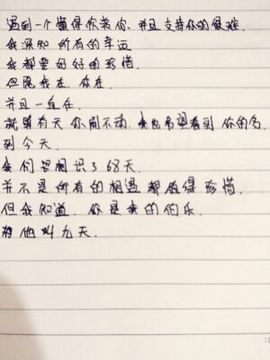 遇到一个懂得你并且支持你的很难.
我深知所有的幸运
我都要好好的珍惜.
但愿我在. 你在.
并且一直在.
就算有天你闹不动. 我也希望看到你的名
到今天.
我们 相识了68天.
并不是所有的相遇都值得珍惜.
但我知道. 你是我的伯乐.
他叫九天.